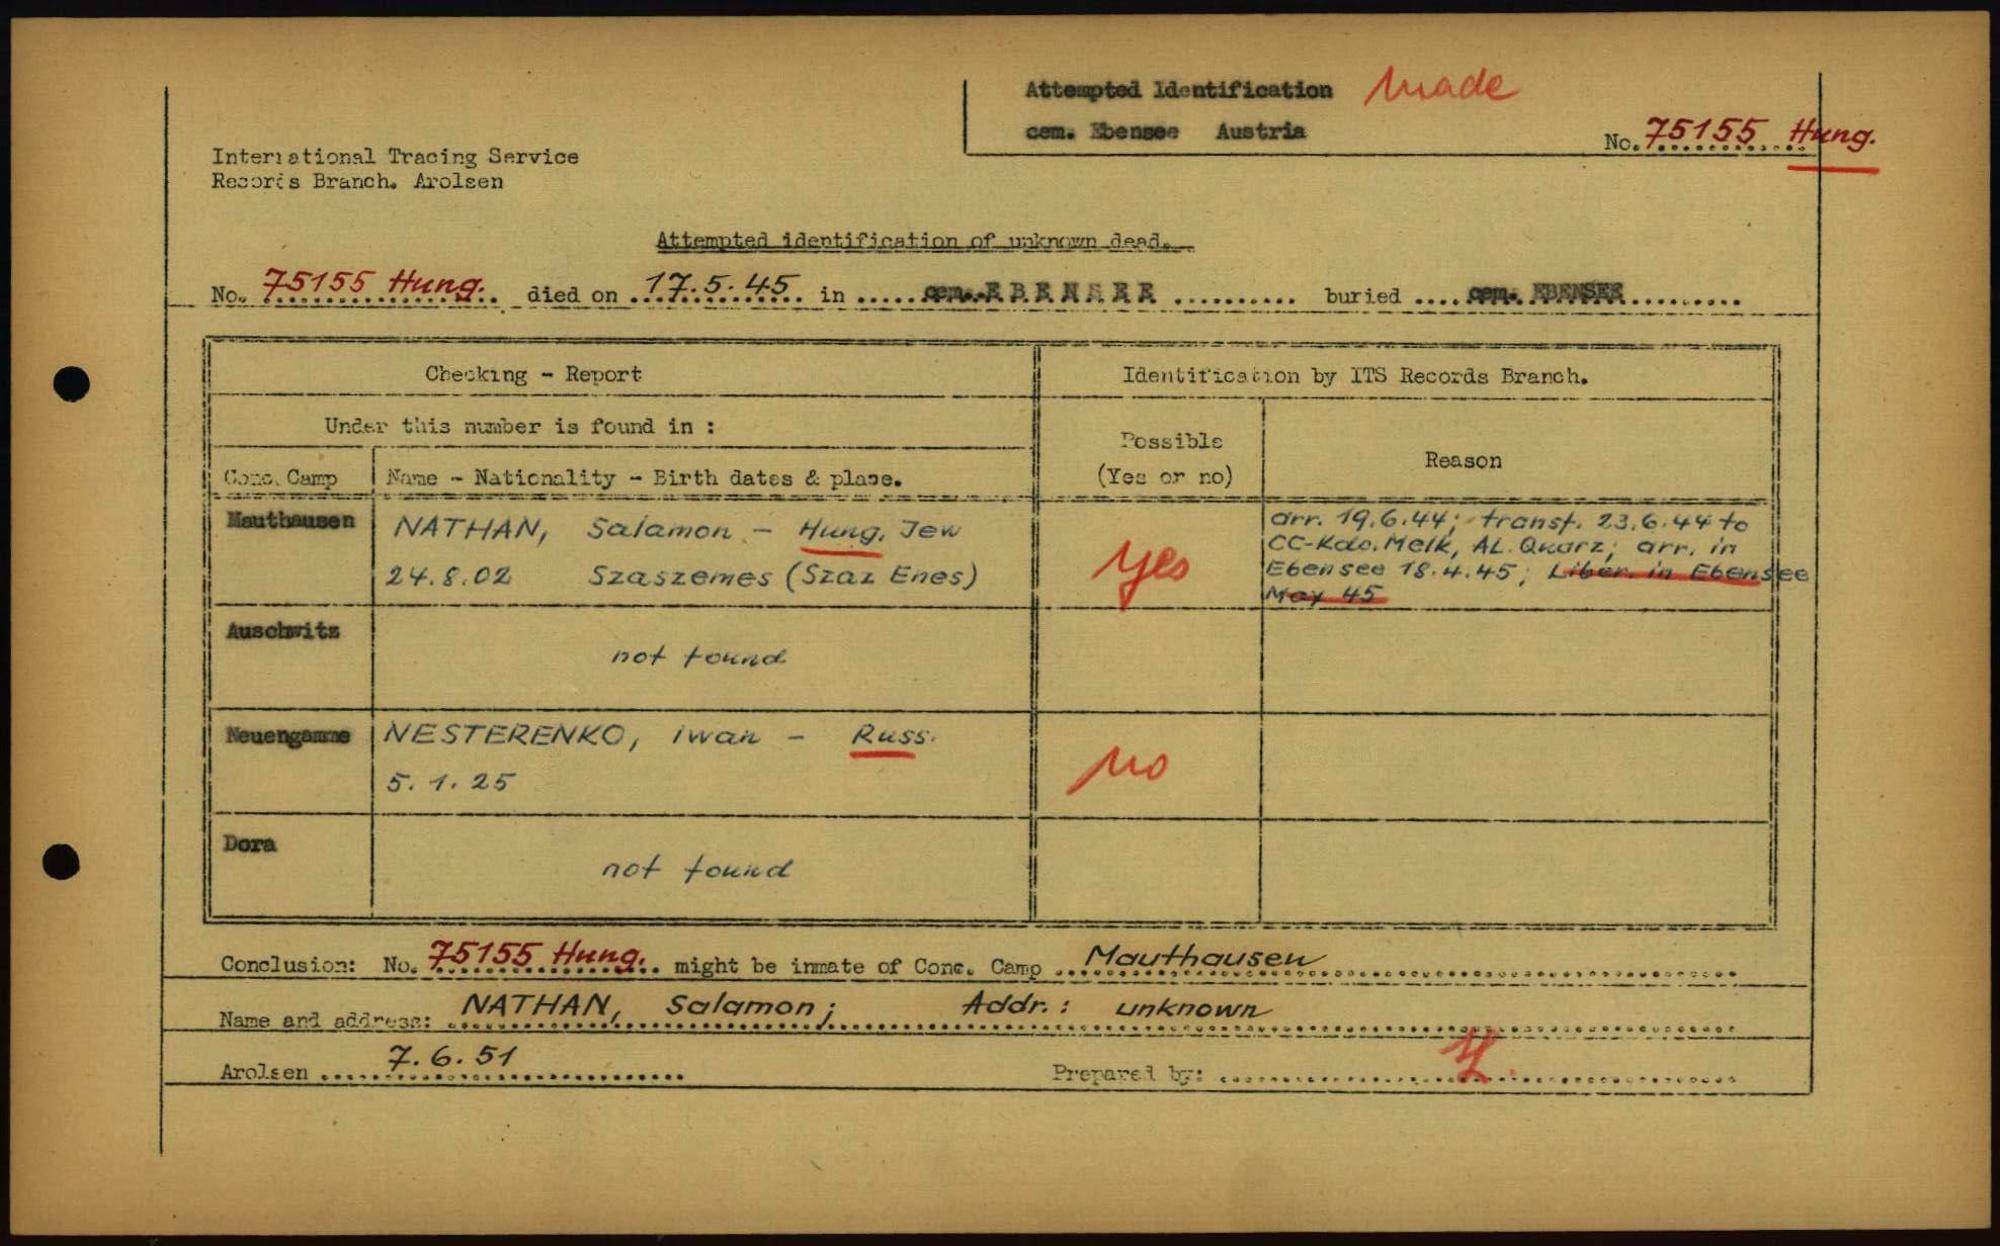 Attempted Identification made
cem. Ebensee Austria
No. 75155 Hung.
International Tracing Service
Records Branch. Arolsen
Attempted identification of unknown dead.
No. 75155 Hung. died on 17.5.45 in cem. EBENSEE buried cem. EBENSEE
Checking - Report
Identification by ITS Records Branch.
Under this number is found in :
Possible
(Yes or no)
Reason
Conc. Camp
Name - Nationality - Birth dates & place.
Mauthausen
NATHAN, Salamon - Hung. Jew
24.8.02 Szaszemes (Szaz Enes)
yes
arr. 19.6.44; transf. 23.6.44 to
CC-Kdo. Melk, AL. Quarz; arr. in
Ebensee 18.4.45; Liber. in Ebensee
May 45
Auschwitz
not found
Neuengamme
NESTERENKO, iwan - Russ.
5.1.25
no
Dora
not found
Conclusion: No. 75155 Hung. might be inmate of Conc. Camp Mauthausen
Name and address: NATHAN, Salamon; Addr.: unknown
Arolsen 7.6.51
Prepared by: